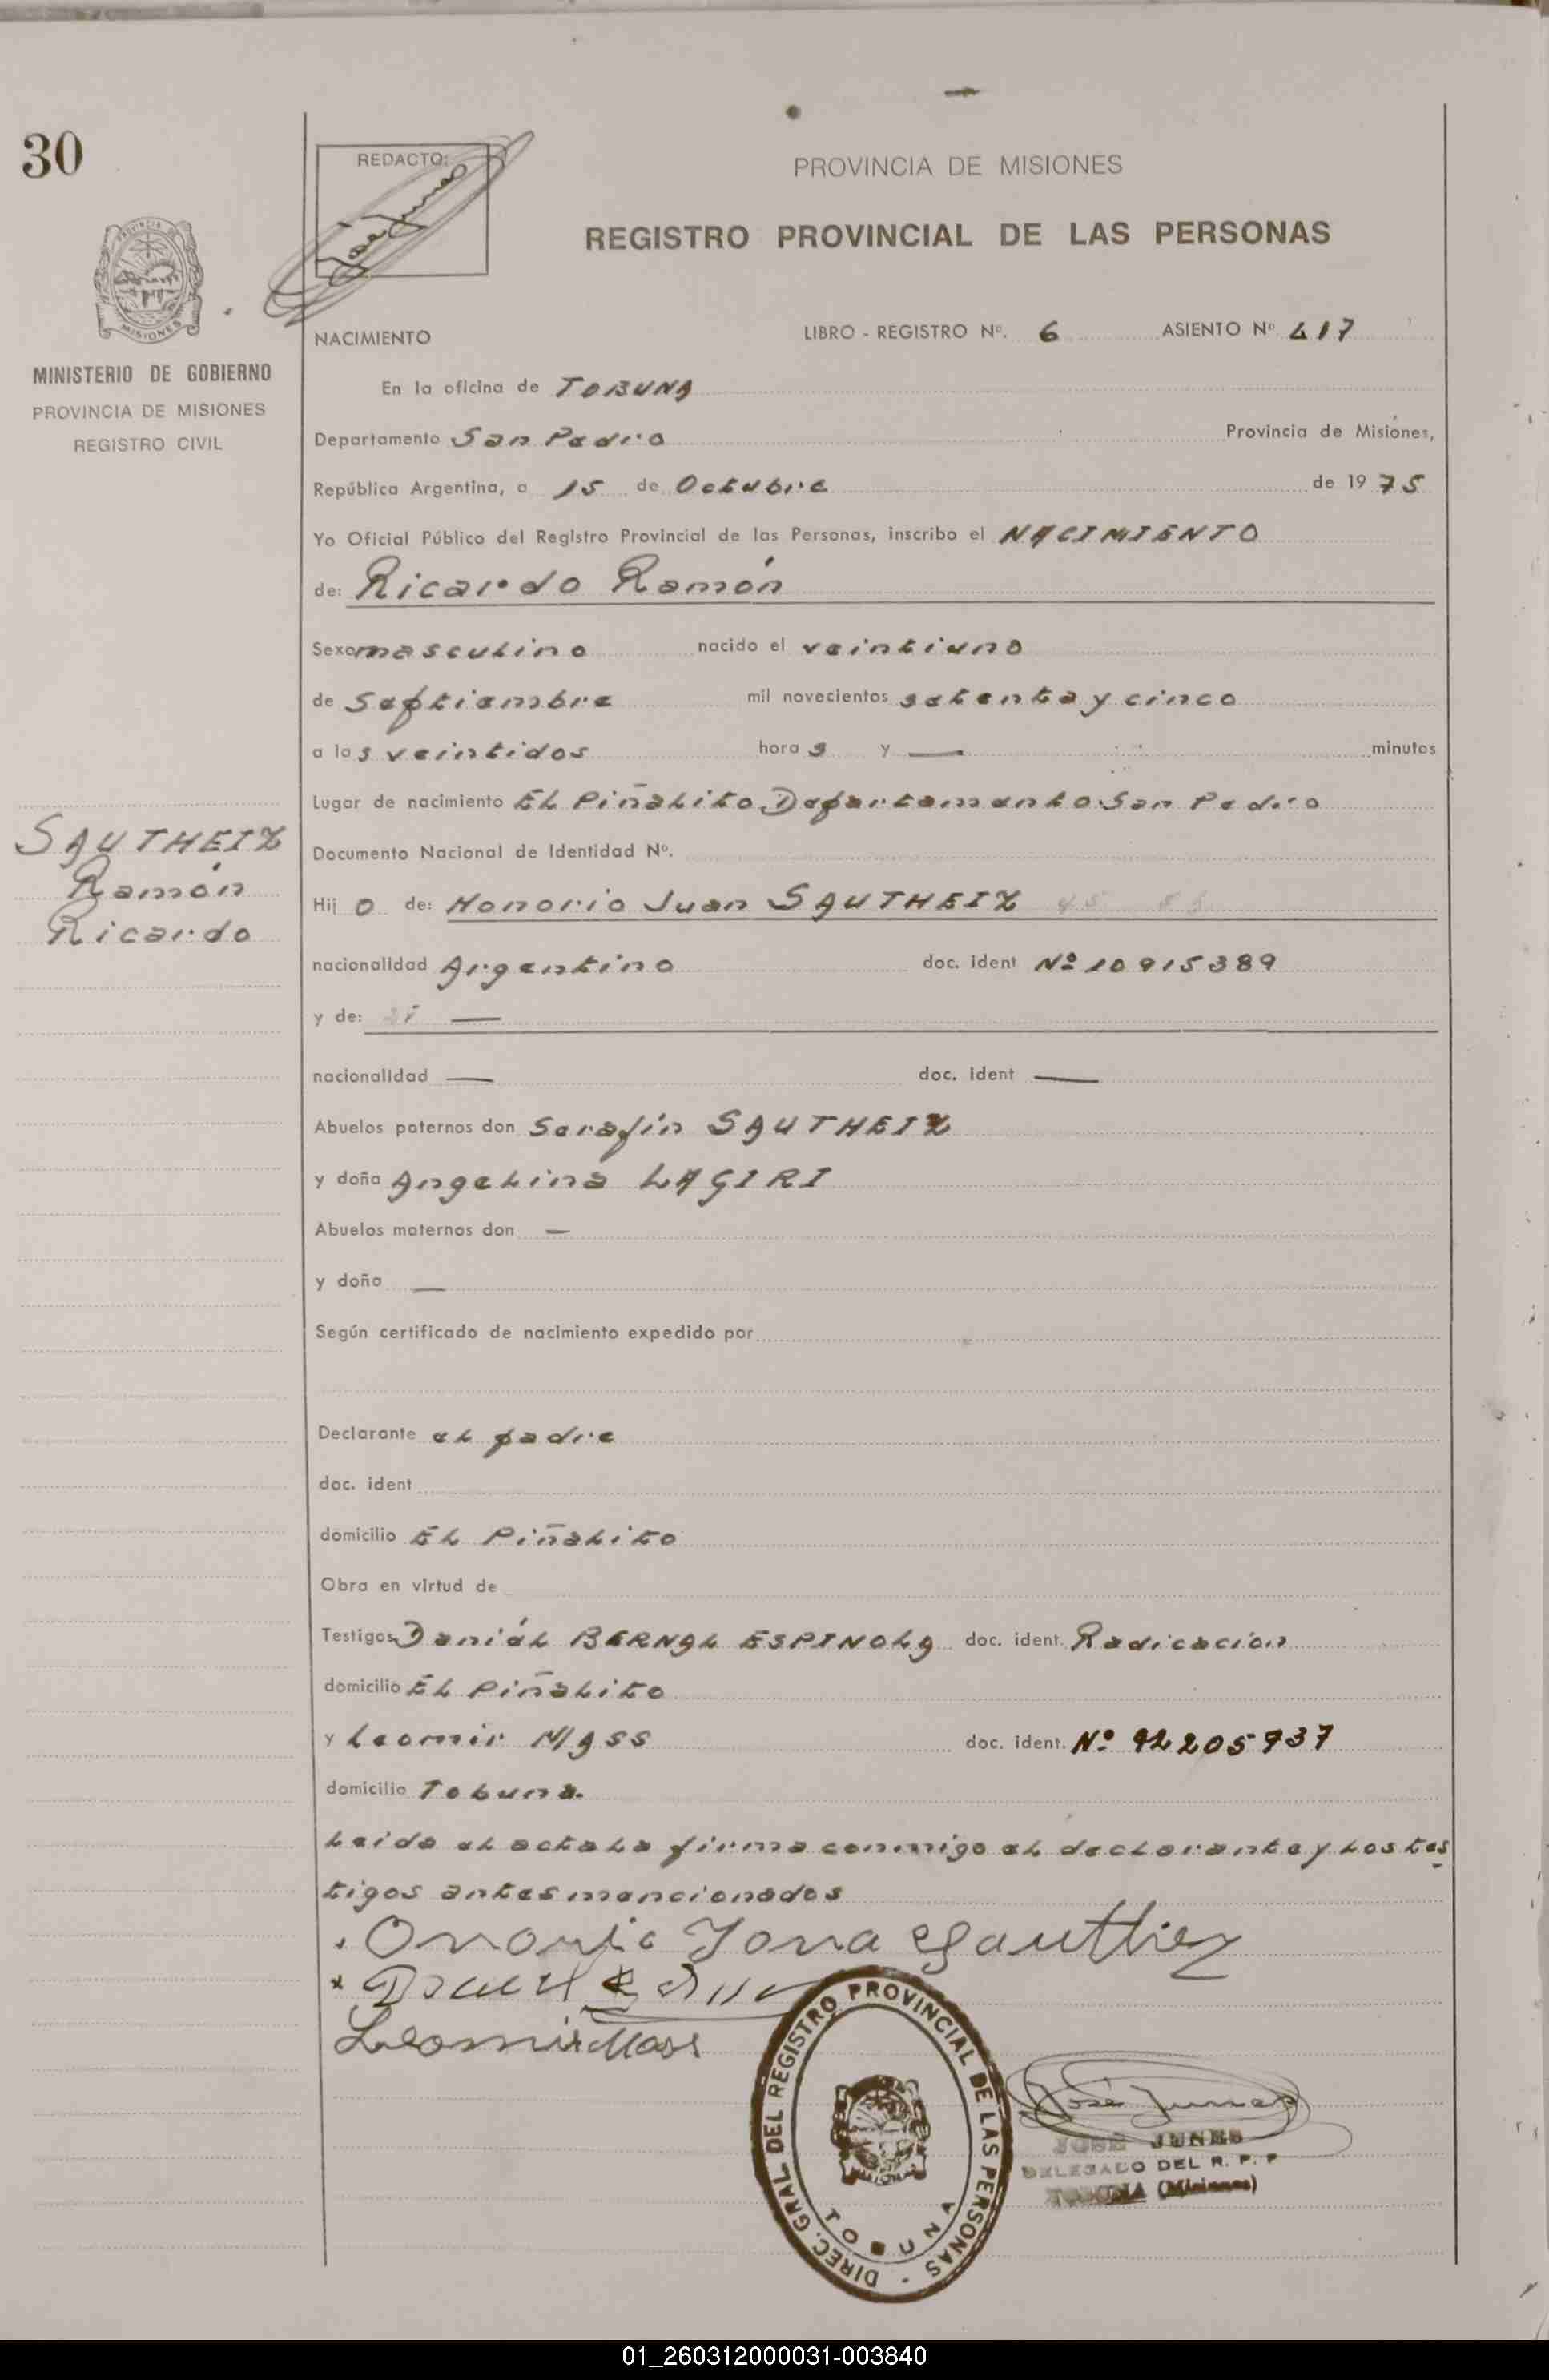 30
REDACTO:
José Junes
PROVINCIA DE MISIONES
REGISTRO PROVINCIAL DE LAS PERSONAS
PROVINCIA DE
MISIONES
MINISTERIO DE GOBIERNO
PROVINCIA DE MISIONES
REGISTRO CIVIL
NACIMIENTO LIBRO - REGISTRO Nº. 6 ASIENTO Nº 417
En la oficina de TOBUNA
Departamento San Pedro Provincia de Misiones,
República Argentina, a 15 de Octubre de 1975
Yo Oficial Público del Registro Provincial de las Personas, inscribo el NACIMIENTO
de: Ricardo Ramón
Sexo masculino nacido el veintiuno
de Septiembre mil novecientos setenta y cinco
a las veintidos hora s y — minutos
Lugar de nacimiento El Piñalito Departamento San Pedro
SAUTHEIZ
Ramón
Ricardo
Documento Nacional de Identidad Nº.
Hij o de: Honorio Juan SAUTHEIZ
nacionalidad Argentino doc. ident Nº 10915389
y de: —
nacionalidad — doc. ident —
Abuelos paternos don Serafín SAUTHEIZ
y doña Angelina LAGIRI
Abuelos maternos don —
y doña —
Según certificado de nacimiento expedido por
Declarante el padre
doc. ident
domicilio El Piñalito
Obra en virtud de
Testigos Daniél BERNAL ESPINOLA doc. ident. Radicación
domicilio El Piñalito
y Leomir MASS doc. ident. Nº 92205737
domicilio Tobuna.
Leida el acta la firma conmigo el declarante y los tes
tigos antes mencionados
Leomir Mass
DIREC. GRAL. DEL REGISTRO PROVINCIAL DE LAS PERSONAS -
TOBUNA
José Junes
JOSÉ JUNES
DELEGADO DEL R. P. P
TOBUNA (Misiones)
01_260312000031-003840